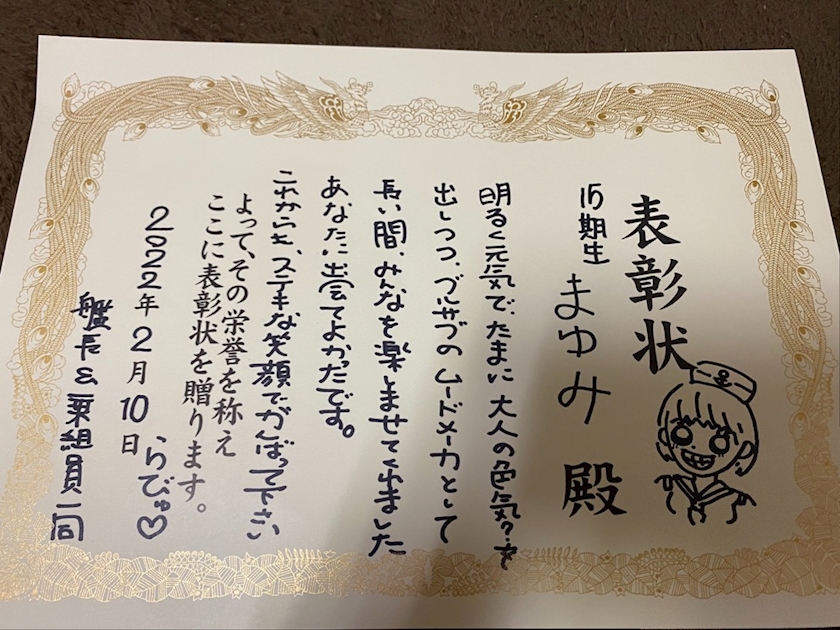 表彰状
15期生 まゆみ 殿
明るく元気で、たまに大人の色気?を
出しつつ、ブルサブのムードメーカとして
長い間、みんなを楽しませてくれました
あなたに出会てよかったです。
これからも、ステキな笑顔でがんばって下さい
よって、その栄誉を称え
ここに表彰状を贈ります。
2022年2月10日
らびゅ♡
艦長&乗組員一同